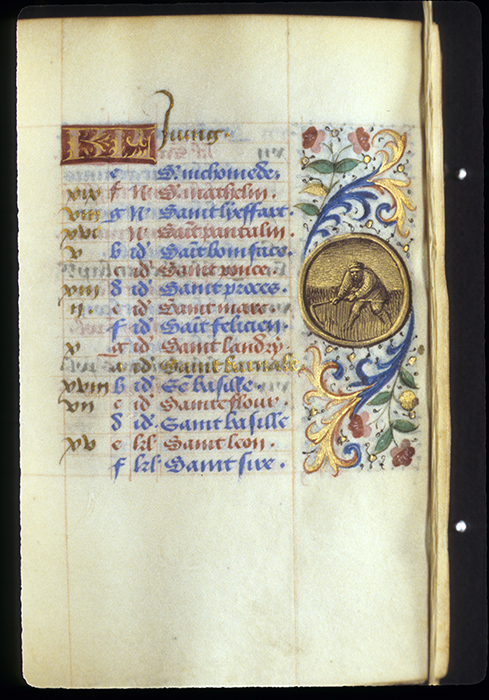 KL Juing.
e S. nichomede.
xix f N Sa mathelin.
viii g N Saint lyeffart.
xvi N Sait pantalin.
v b id Sait boniface.
c id Saint ponce.
xiii d id Saint proces.
ii e id Saint marc.
f id Sait felicien.
x g id Saint landry.
a id Saint barnabe
xviii b id Se basille.
vii c id Sainte flour.
d id Saint basille
xv e kl Saint leon.
f kl Saint sixe.